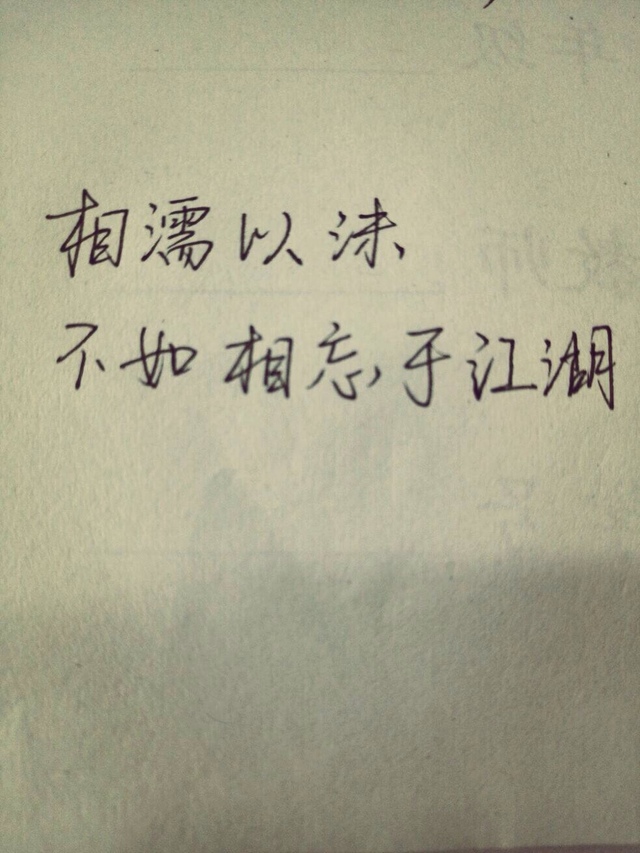 相濡以沫、
不如相忘于江湖